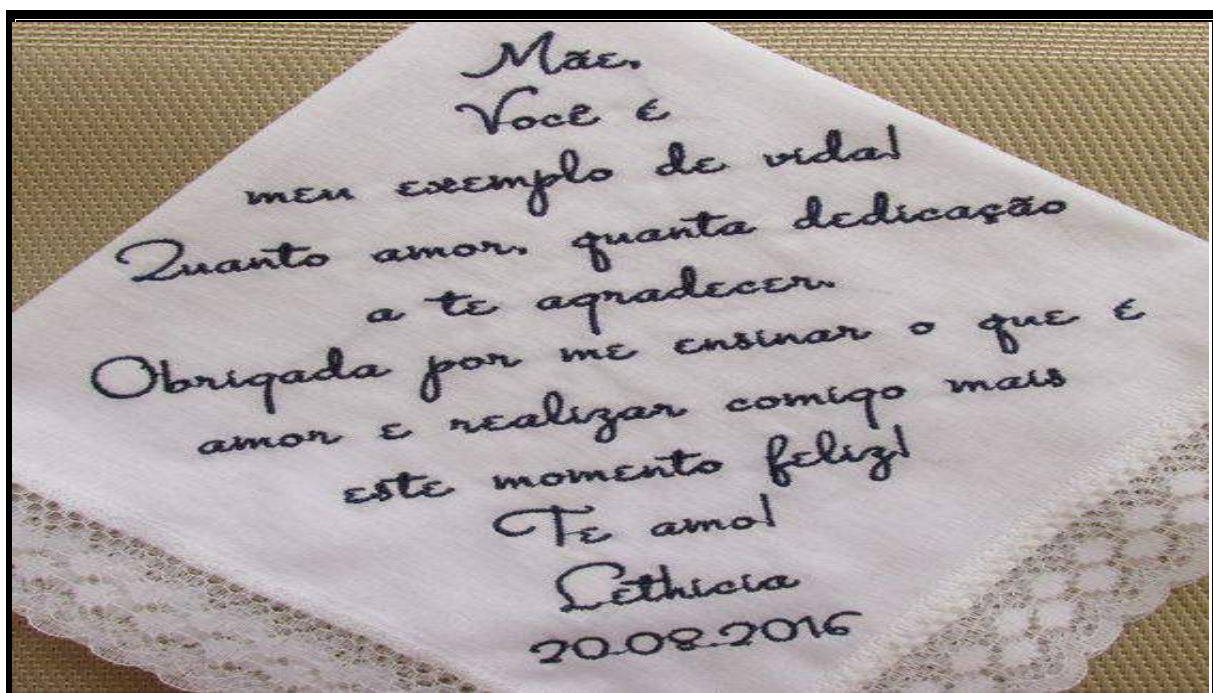 Mãe,
Você é
meu exemplo de vida!
Quanto amor, quanta dedicação
a te agradecer.
Obrigada por me ensinar o que é
amor e realizar comigo mais
este momento feliz!
Te amo!
Lethicia
20.08.2016